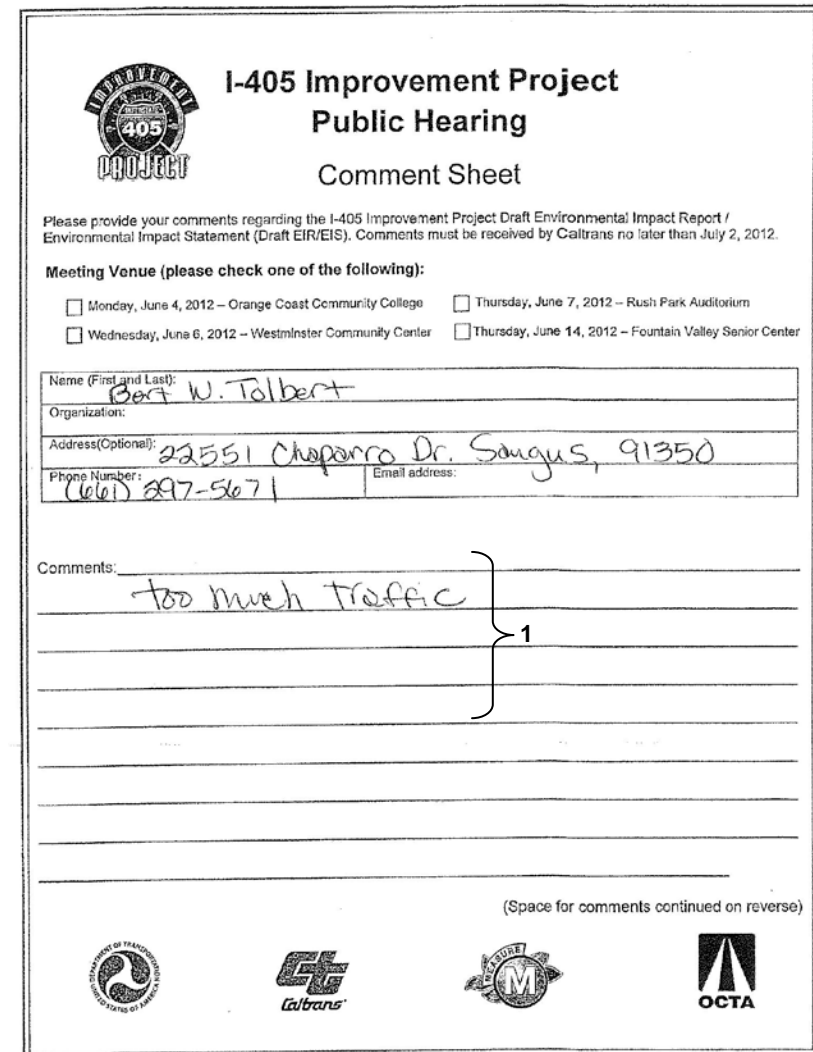 IMPROVEMENT
405
PROJECT
I-405 Improvement Project
Public Hearing
Comment Sheet
Please provide your comments regarding the I-405 Improvement Project Draft Environmental Impact Report /
Environmental Impact Statement (Draft EIR/EIS). Comments must be received by Caltrans no later than July 2, 2012.
Meeting Venue (please check one of the following):
Monday, June 4, 2012 – Orange Coast Community College
Thursday, June 7, 2012 – Rush Park Auditorium
Wednesday, June 6, 2012 – Westminster Community Center
Thursday, June 14, 2012 – Fountain Valley Senior Center
Name (First and Last): Bert W. Tolbert
Organization:
Address(Optional): 22551 Chaparro Dr. Saugus, 91350
Phone Number: (661) 297-5671
Email address:
Comments:
too much traffic
1
(Space for comments continued on reverse)
DEPARTMENT OF TRANSPORTATION
UNITED STATES OF AMERICA
Ct
Caltrans
MEASURE
M
OCTA